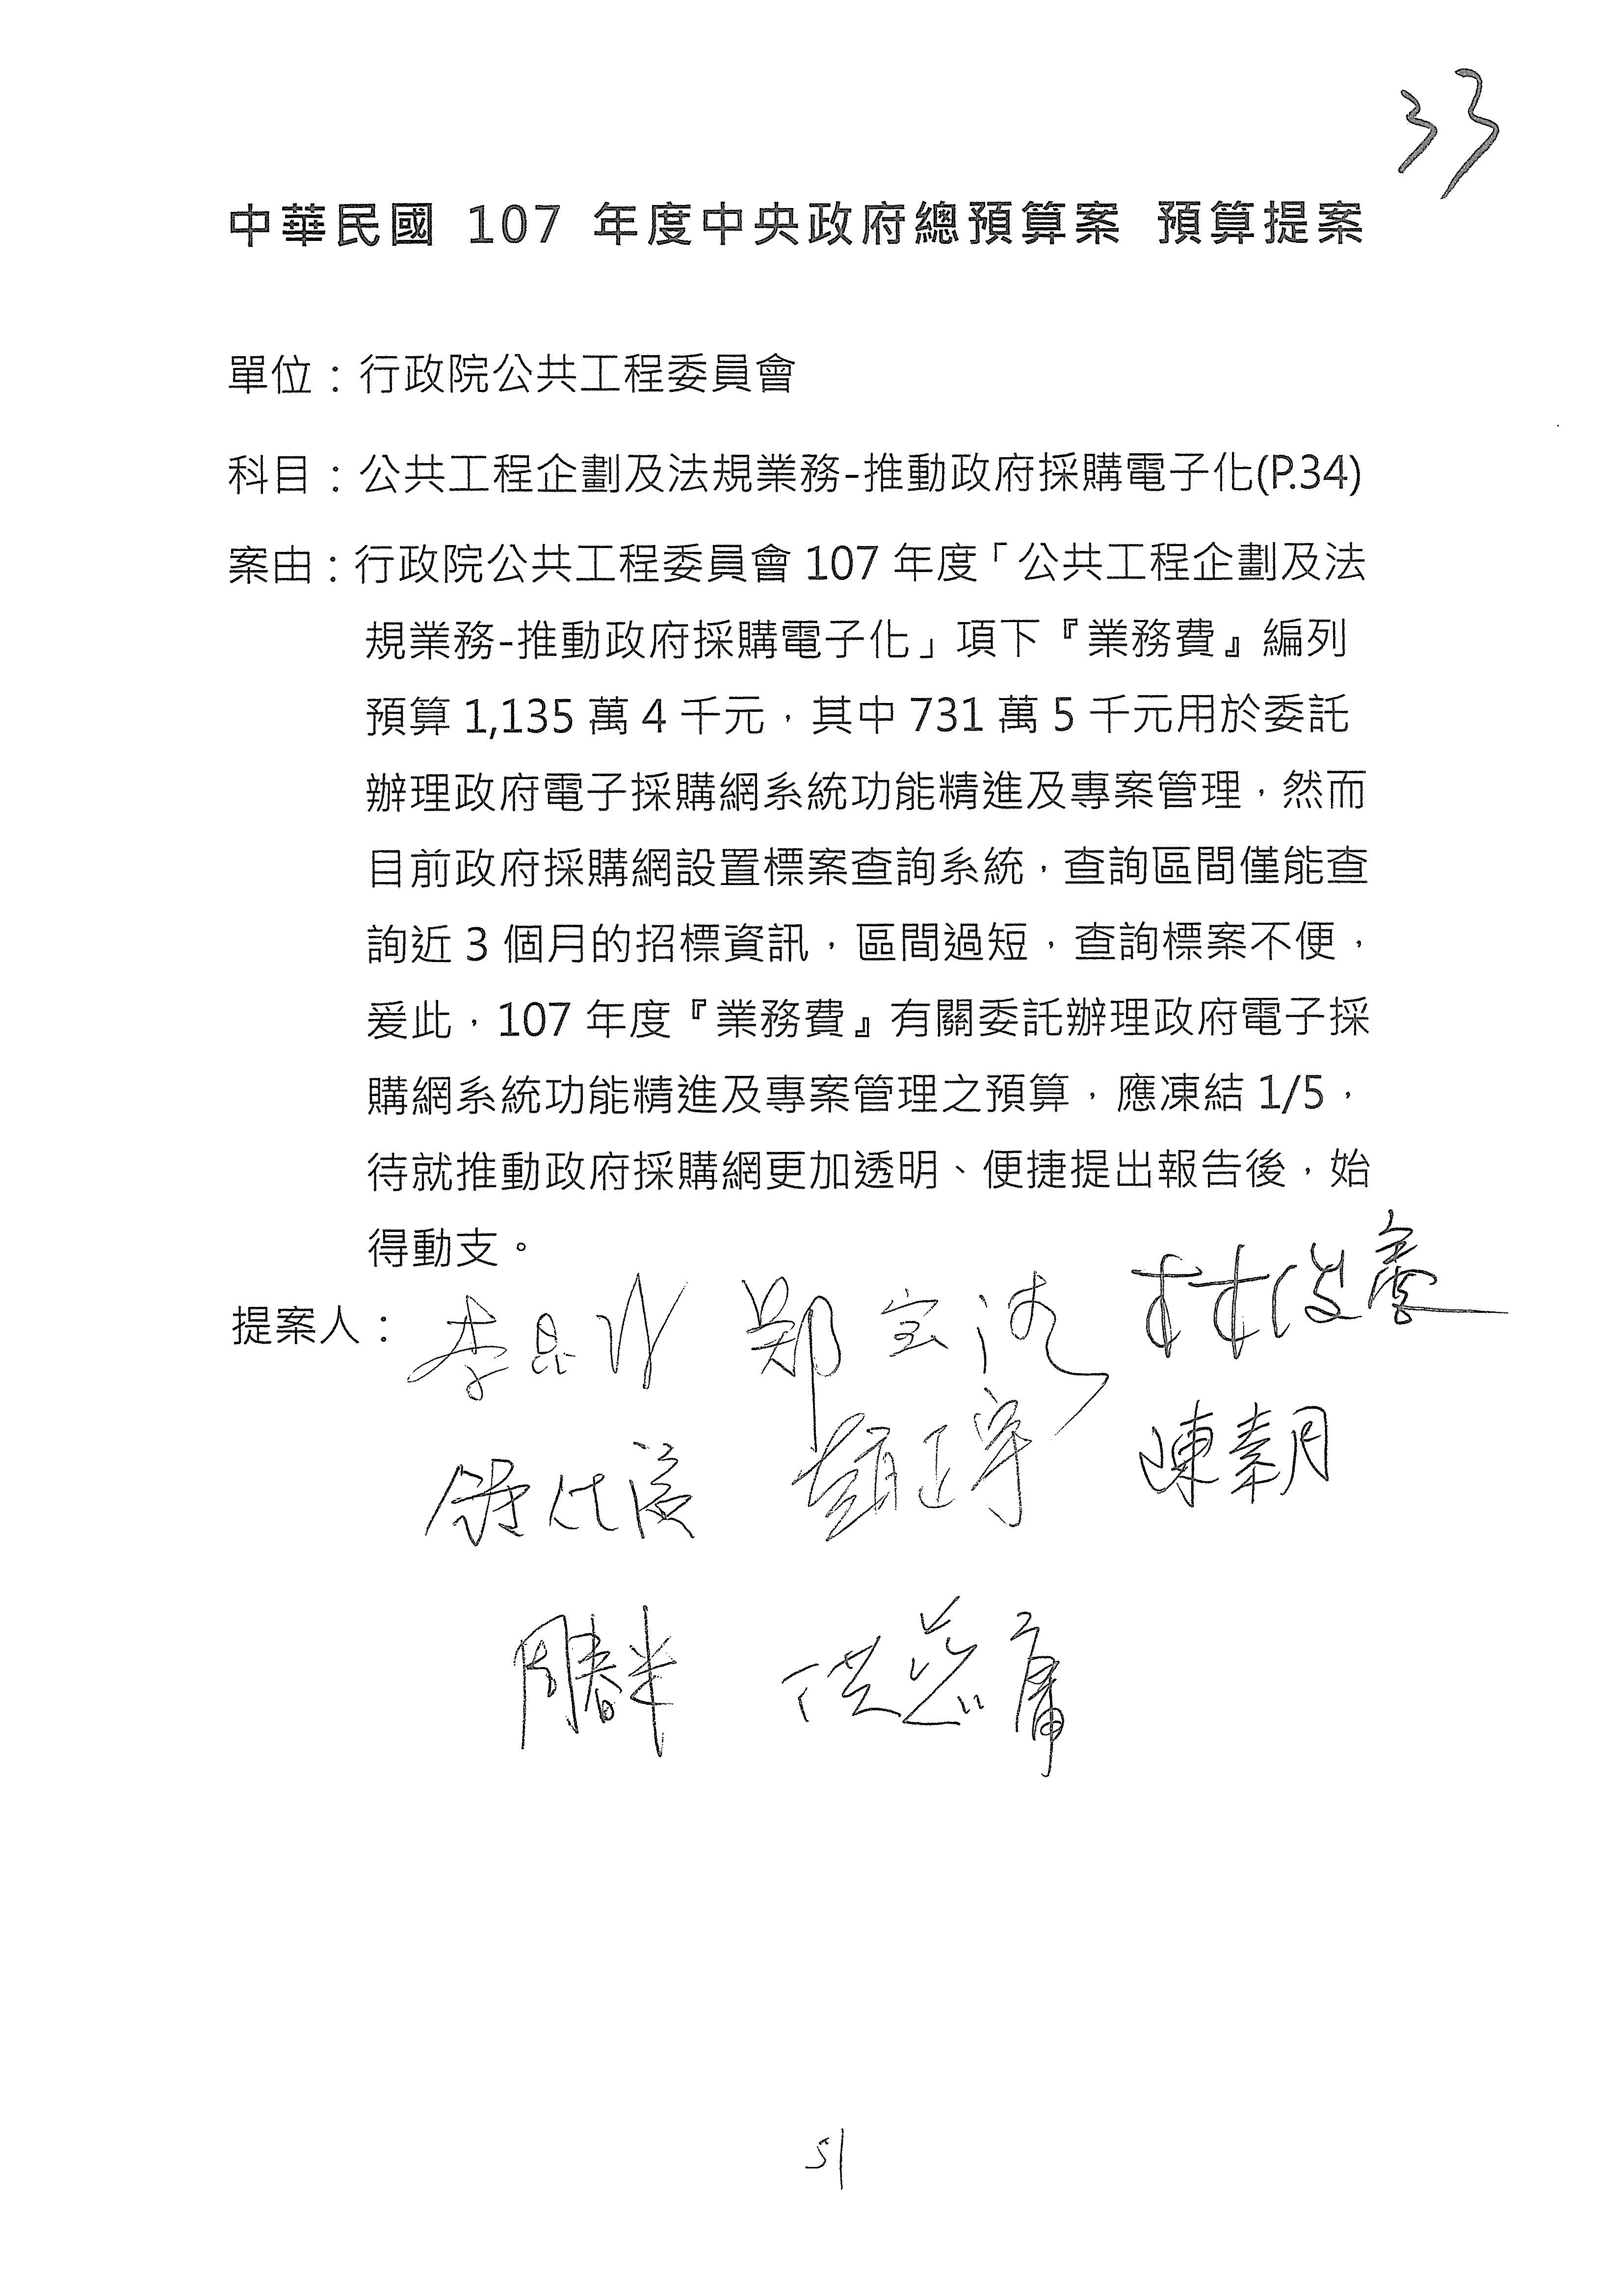 33
中華民國 107 年度中央政府總預算案 預算提案
單位：行政院公共工程委員會
科目：公共工程企劃及法規業務-推動政府採購電子化(P.34)
案由：行政院公共工程委員會 107 年度「公共工程企劃及法
規業務-推動政府採購電子化」項下『業務費』編列
預算 1,135 萬 4 千元，其中 731 萬 5 千元用於委託
辦理政府電子採購網系統功能精進及專案管理，然而
目前政府採購網設置標案查詢系統，查詢區間僅能查
詢近 3 個月的招標資訊，區間過短，查詢標案不便，
爰此，107 年度『業務費』有關委託辦理政府電子採
購網系統功能精進及專案管理之預算，應凍結 1/5，
待就推動政府採購網更加透明、便捷提出報告後，始
得動支。
提案人：李昆泽 鄭宝清 林俊憲
趙正宇 陳素月
周春米 洪慈庸
51